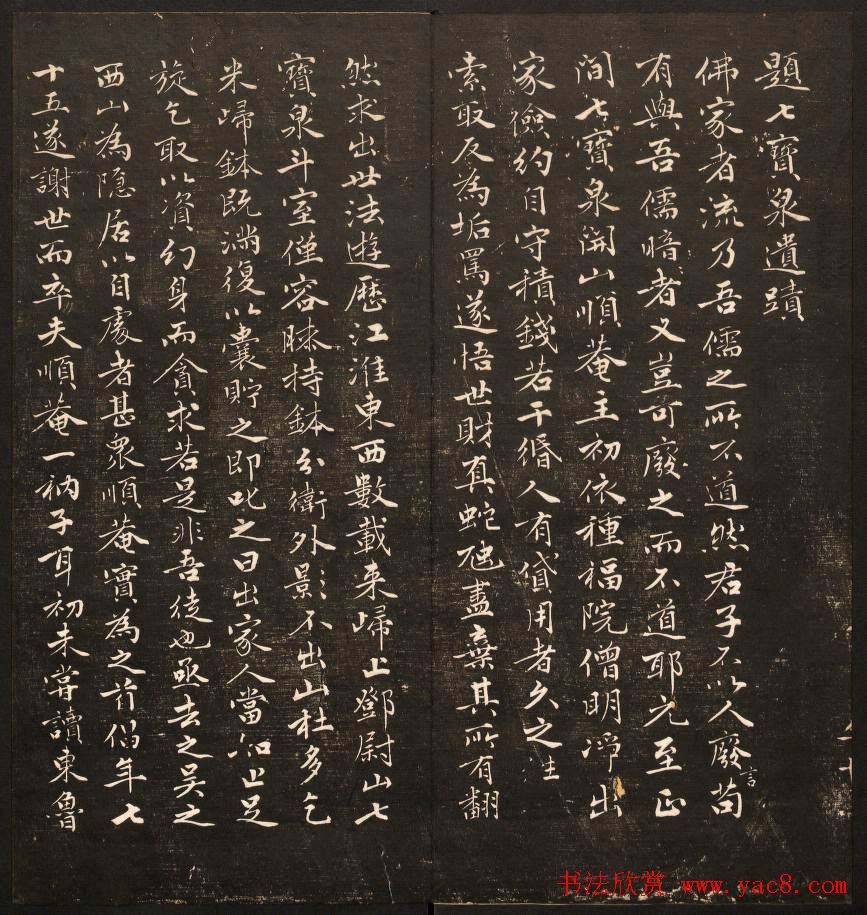 題七寶泉遺蹟
佛家者流乃吾儒之所不道然君子不以人廢言苟
有與吾儒暗者又豈可廢之而不道耶元至正
間七寶泉開山順菴主初依種福院僧明淨出
家儉約自守積錢若干緡人有貸用者久之往
索取反為垢罵遂悟世財真蛇虺盡棄其所有翻
然求出世法遊歷江淮東西數載来歸上鄧尉山七
寶泉斗室僅容牀持鉢分衛外影不出山杜多乞
米歸鉢既滿復以囊貯之即叱之曰出家人當知止足
旋乞取以資幻身而貪求若是非吾徒也亟去之吳之
西山為隐居以自處者甚眾順菴實為之首倡年七
十五遂謝世而卒夫順菴一衲子耳初未嘗讀東魯
书法欣赏 www.yac8.com